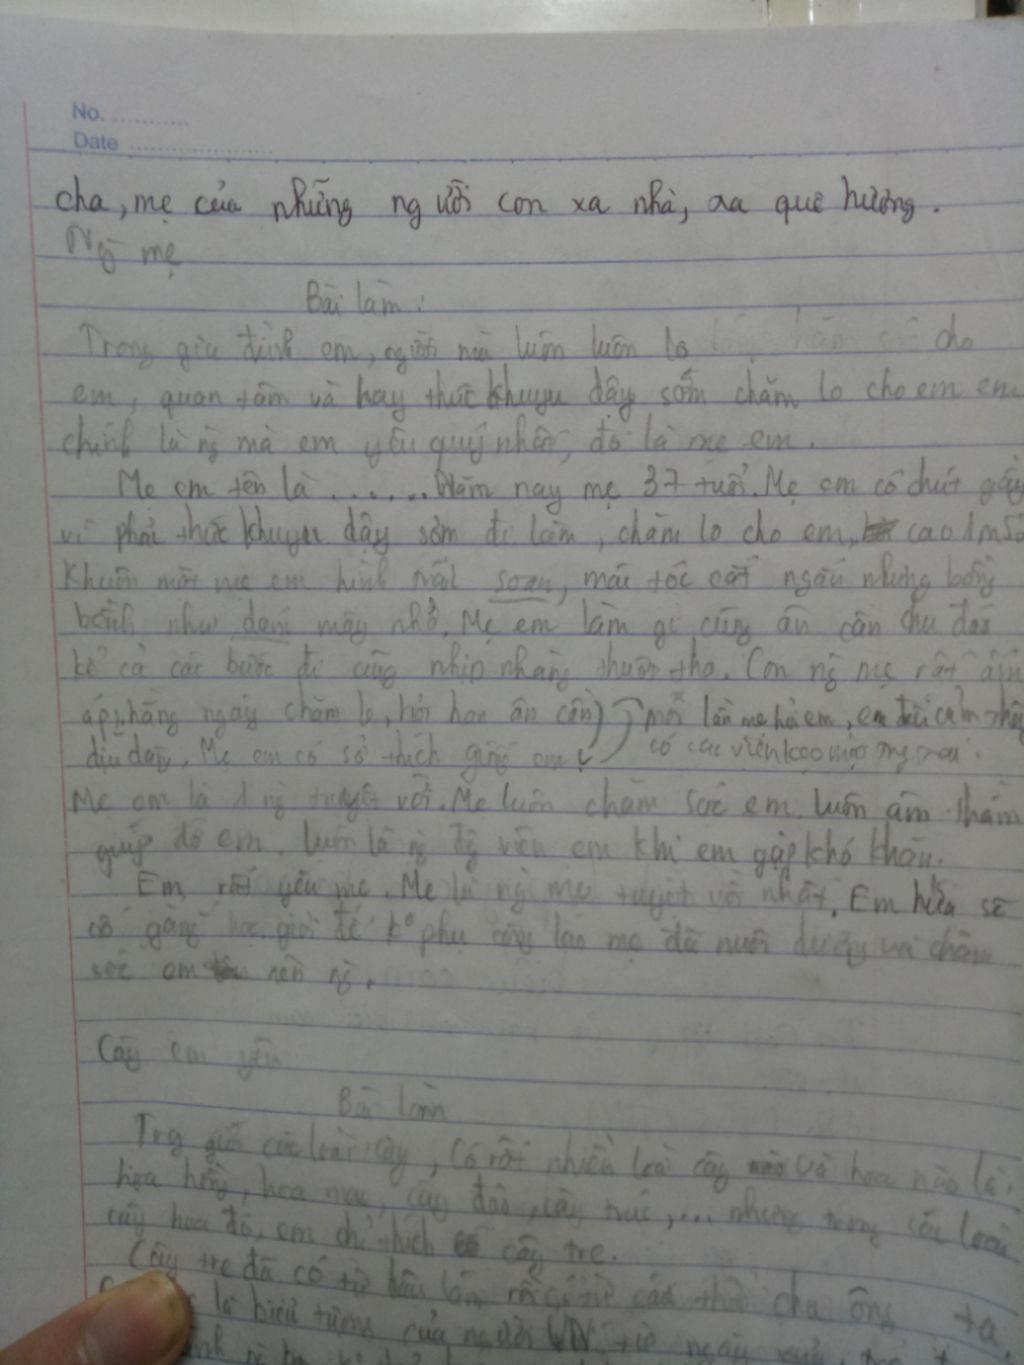 No. ............
Date .....................
cha, mẹ của những người con xa nhà, xa quê hương.
Ng mẹ
Bài làm:
Trong gia đình em, người mà luôn luôn lo cho
em, quan tâm và hay thức khuya dậy sớm chăm lo cho em em
chính là ng mà em yêu quý nhất, đó là mẹ em.
Mẹ em tên là ....... Năm nay mẹ 37 tuổi. Mẹ em có chút gầy
vì phải thức khuya dậy sớm đi làm, chăm lo cho em, cao 1m50
Khuôn mặt mẹ em hình soan, mái tóc cắt ngắn nhưng bồng
bềnh như mây nhỏ. Mẹ em làm gì cũng ân cần chu đáo
kể cả các bước đi cũng nhịp nhàng thướt tha. Con ng mẹ rất ấm
áp, hằng ngày chăm lo, hỏi han ân cần) mỗi lần mẹ em, em
dịu dàng. Mẹ em có sở thích giống em có các viên kẹo
Mẹ em là 1 ng tuyệt vời. Mẹ luôn chăm sóc em. luôn âm thầm
giúp đỡ em. luôn là ng độg viên em khi em gặp khó khăn.
Em rất yêu mẹ. Mẹ là ng mẹ tuyệt vời nhất. Em hứa sẽ
cố gắng học giỏi để k phụ công lao mẹ đã nuôi dưỡng và chăm
sóc em nên ng.
Cây em yêu
Bài làm
Trg giới các loài cây, có rất nhiều loài cây và hoa nào là:
hoa hồng, hoa mai, cây đào, cây trúc,... nhưng trong các loài
cây hoa đó, em chỉ thích cây tre.
Cây tre đã có từ lâu lắm rồi, từ các thời cha ông ta
là biểu tượng của người VN từ ngày xưa,